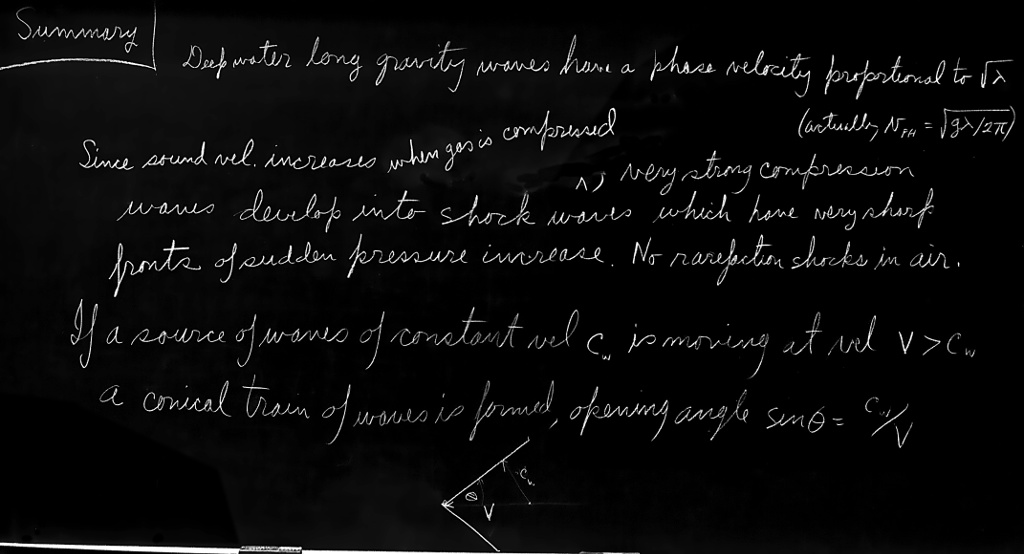 Summary
Deep water long gravity waves have a phase velocity proportional to √λ
(actually, v_PH = √gλ/2π)
Since sound vel. increases when gas is compressed
^, very strong compression
waves develop into shock waves which have very sharp
fronts of sudden pressure increase. No rarefaction shocks in air.
If a source of waves of constant vel c_w is moving at vel V > c_w
a conical train of waves is formed, opening angle sin θ = c_w/V
c_w
θ
V